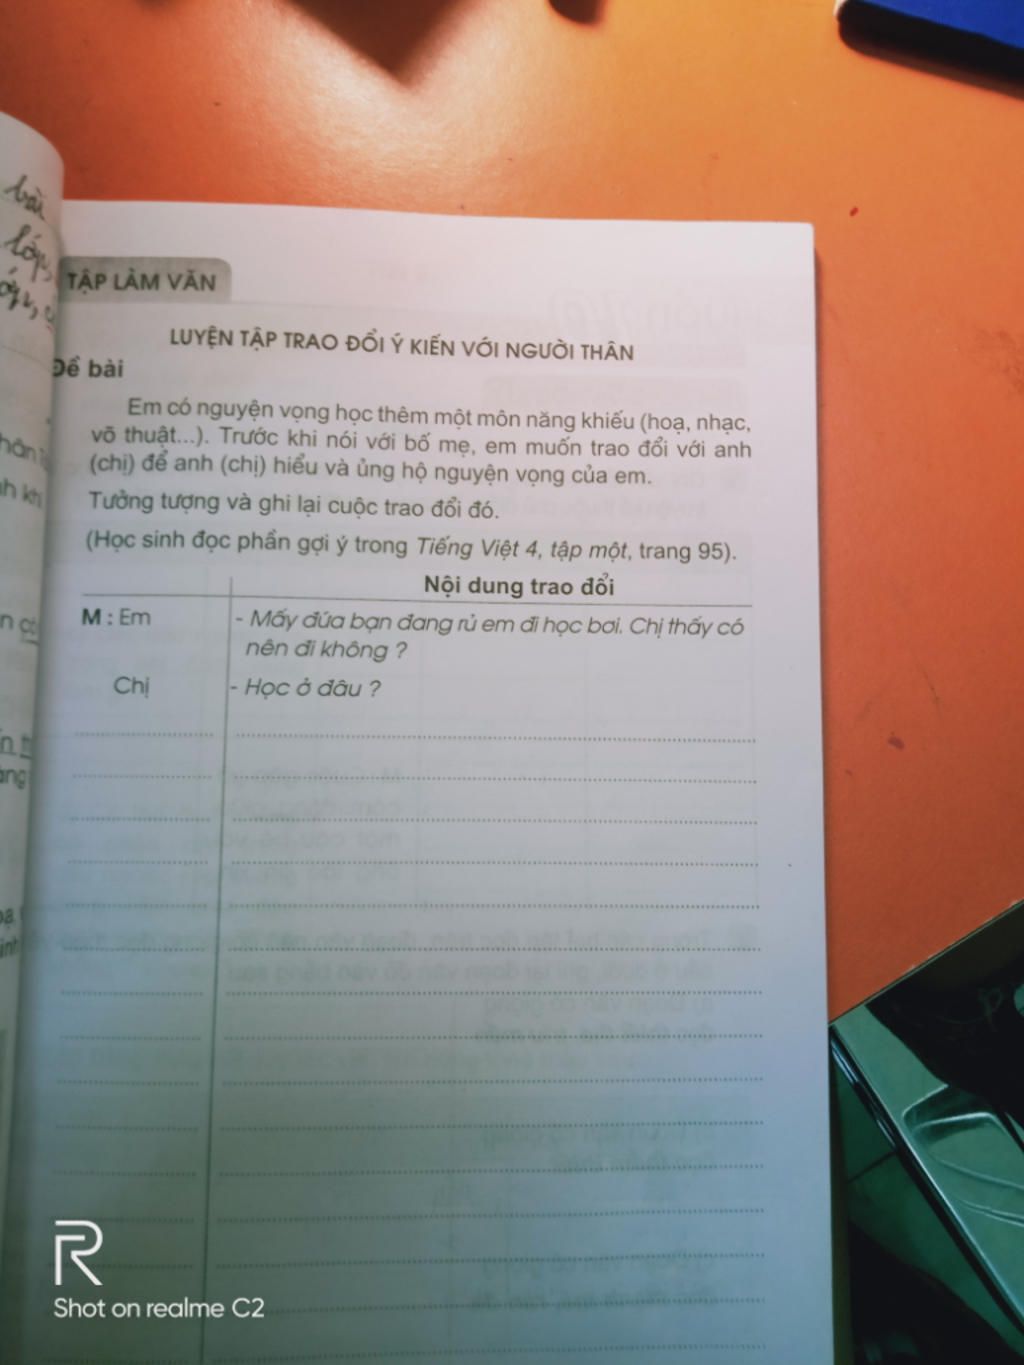 bài
lớp,
TẬP LÀM VĂN
LUYỆN TẬP TRAO ĐỔI Ý KIẾN VỚI NGƯỜI THÂN
Đề bài
Em có nguyện vọng học thêm một môn năng khiếu (hoạ, nhạc,
võ thuật...). Trước khi nói với bố mẹ, em muốn trao đổi với anh
(chị) để anh (chị) hiểu và ủng hộ nguyện vọng của em.
Tưởng tượng và ghi lại cuộc trao đổi đó.
(Học sinh đọc phần gợi ý trong Tiếng Việt 4, tập một, trang 95).
Nội dung trao đổi
M : Em - Mấy đứa bạn đang rủ em đi học bơi. Chị thấy có
nên đi không ?
Chị - Học ở đâu ?
Shot on realme C2